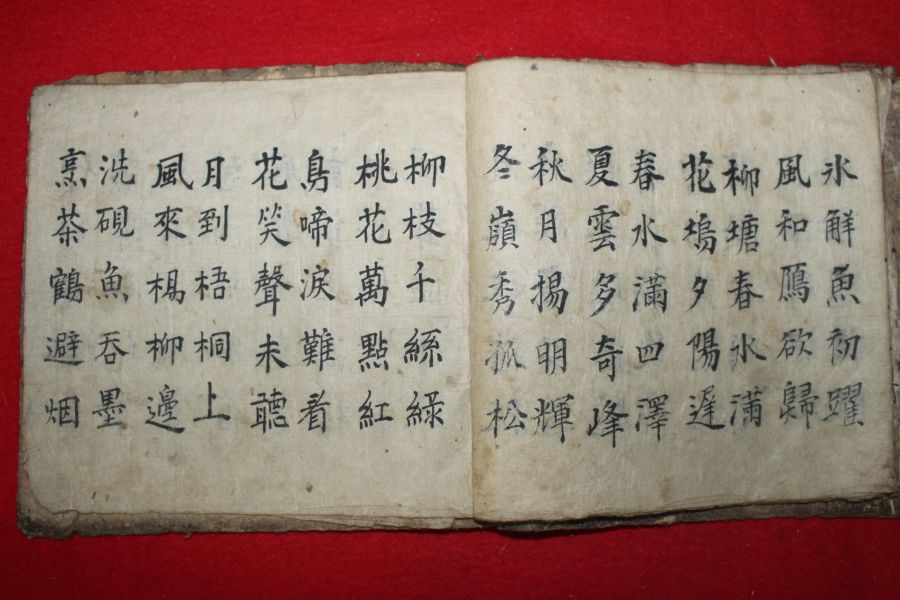 氷解魚初躍
風和鴈欲歸
柳塘春水滿
花塢夕陽遲
春水滿四澤
夏雲多奇峰
秋月揚明輝
冬嶺秀孤松
柳枝千絲綠
桃花萬點紅
鳥啼淚難看
花笑聲未聽
月到梧桐上
風來楊柳邊
洗硯魚吞墨
烹茶鶴避烟